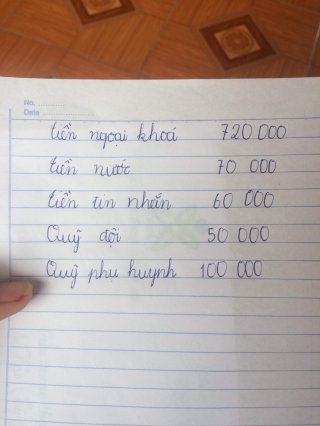 No.
Date
tiền ngoại khoá 720 000
tiền nước 70 000
tiền tin nhắn 60 000
Quỹ đội 50 000
Quỹ phụ huynh 100 000